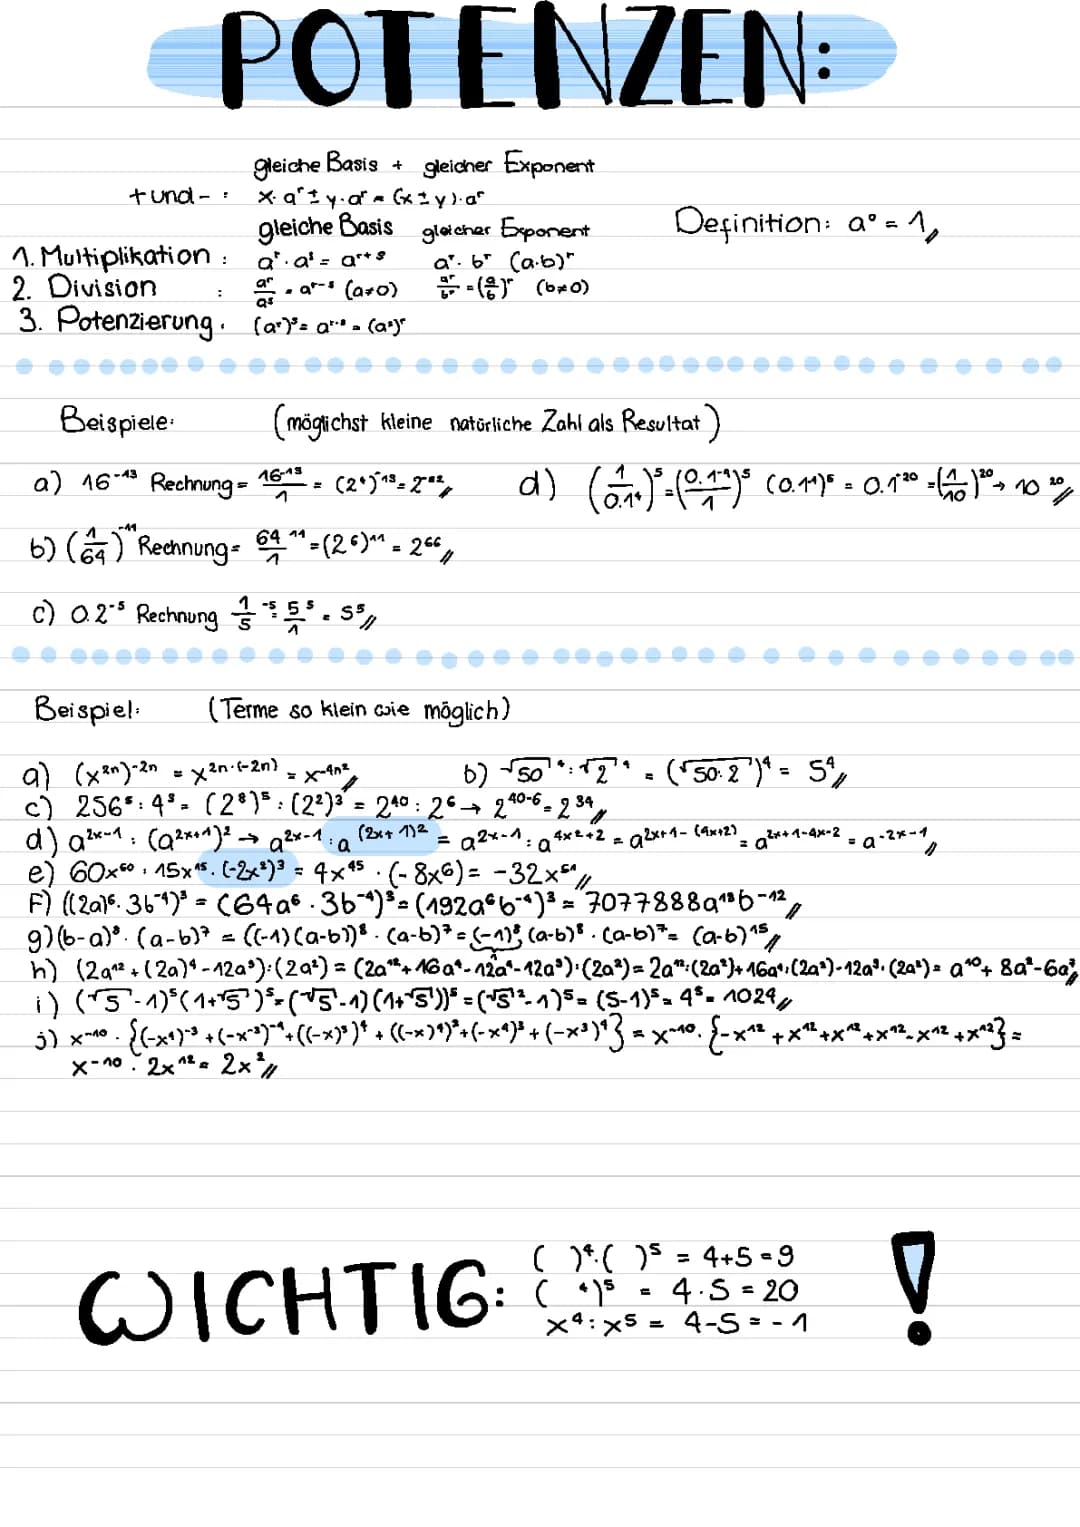 POTENZEN:
gleiche Basis + gleicher Exponent
+ und - : x·aʳ ± y·aʳ = (x ± y)·aʳ
gleiche Basis gleicher Exponent
Definition: a⁰ = 1
1. Multiplikation : aʳ·aˢ = aʳ⁺ˢ aʳ·bʳ (a·b)ʳ
2. Division : aʳ/aˢ = aʳ⁻ˢ (a≠0) aʳ/bʳ = (a/b)ʳ (b≠0)
3. Potenzierung. (aʳ)ˢ = aʳ·ˢ = (aˢ)ʳ
Beispiele: (möglichst kleine natürliche Zahl als Resultat)
a) 16⁻¹³ Rechnung = 16⁻¹³/1 = (2⁴)⁻¹³ = 2⁻⁵² d) (1/0.1⁴)⁵ = (0.1⁻⁴/1)⁵ (0.1⁻⁴)⁵ = 0.1⁻²⁰ = (1/10)⁻²⁰ → 10²⁰
b) (1/64)⁻¹¹ Rechnung = 64/1 ¹¹ = (2⁶)¹¹ = 2⁶⁶
c) 0.2⁻⁵ Rechnung 1/5 ⁻⁵ = 5/1 ⁵ = 5⁵
Beispiel: (Terme so klein wie möglich)
a) (x²ⁿ)⁻²ⁿ = x^(2n·(-2n)) = x^(-4n²) b) √50⁴ : √2⁴ = (√50:2)⁴ = 5⁴
c) 256⁵ : 4³ = (2⁸)⁵ : (2²)³ = 2⁴⁰ : 2⁶ → 2⁴⁰⁻⁶ = 2³⁴
d) a^(2x-1) : (a^(2x+1))² → a^(2x-1) : a^((2x+1)2) = a^(2x-1) : a^(4x+2) = a^(2x+1-(4x+2)) = a^(2x+1-4x-2) = a^(-2x-1)
e) 60x⁶⁰ : 15x¹⁵ · (-2x²)³ = 4x⁴⁵ · (-8x⁶) = -32x⁵¹
f) ((2a)⁶ · 3b⁻⁴)³ = (64a⁶ · 3b⁻⁴)³ = (192a⁶b⁻⁴)³ = 7077888a¹⁸b⁻¹²
g) (b-a)⁸ · (a-b)⁷ = ((-1)(a-b))⁸ · (a-b)⁷ = (-1)⁸ (a-b)⁸ · (a-b)⁷ = (a-b)¹⁵
h) (2a¹² + (2a)⁴ - 12a³) : (2a²) = (2a¹² + 16a⁴ - 12a⁴ - 12a³) : (2a²) = 2a¹² : (2a²) + 16a⁴ : (2a²) - 12a³ : (2a²) = a¹⁰ + 8a² - 6a
i) (√5 - 1)⁵ (1+√5)⁵ = (√5 - 1)(1+√5))⁵ = (√5² - 1)⁵ = (5-1)⁵ = 4⁵ = 1024
j) x⁻¹⁰ · {(-x⁴)⁻³ + (-x⁻³)⁻⁴ + ((-x)³)⁴ + ((-x)⁴)³ + (-x⁴)³ + (-x³)⁴} = x⁻¹⁰ · {-x¹² + x¹² + x¹² + x¹² - x¹² + x¹²} =
x⁻¹⁰ · 2x¹² = 2x²
WICHTIG: !
( )⁴·( )⁵ = 4+5 = 9
( ⁴)⁵ = 4·5 = 20
x⁴ : x⁵ = 4-5 = -1